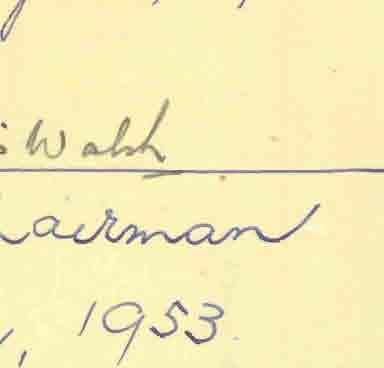 s Walsh
hairman
, 1953.